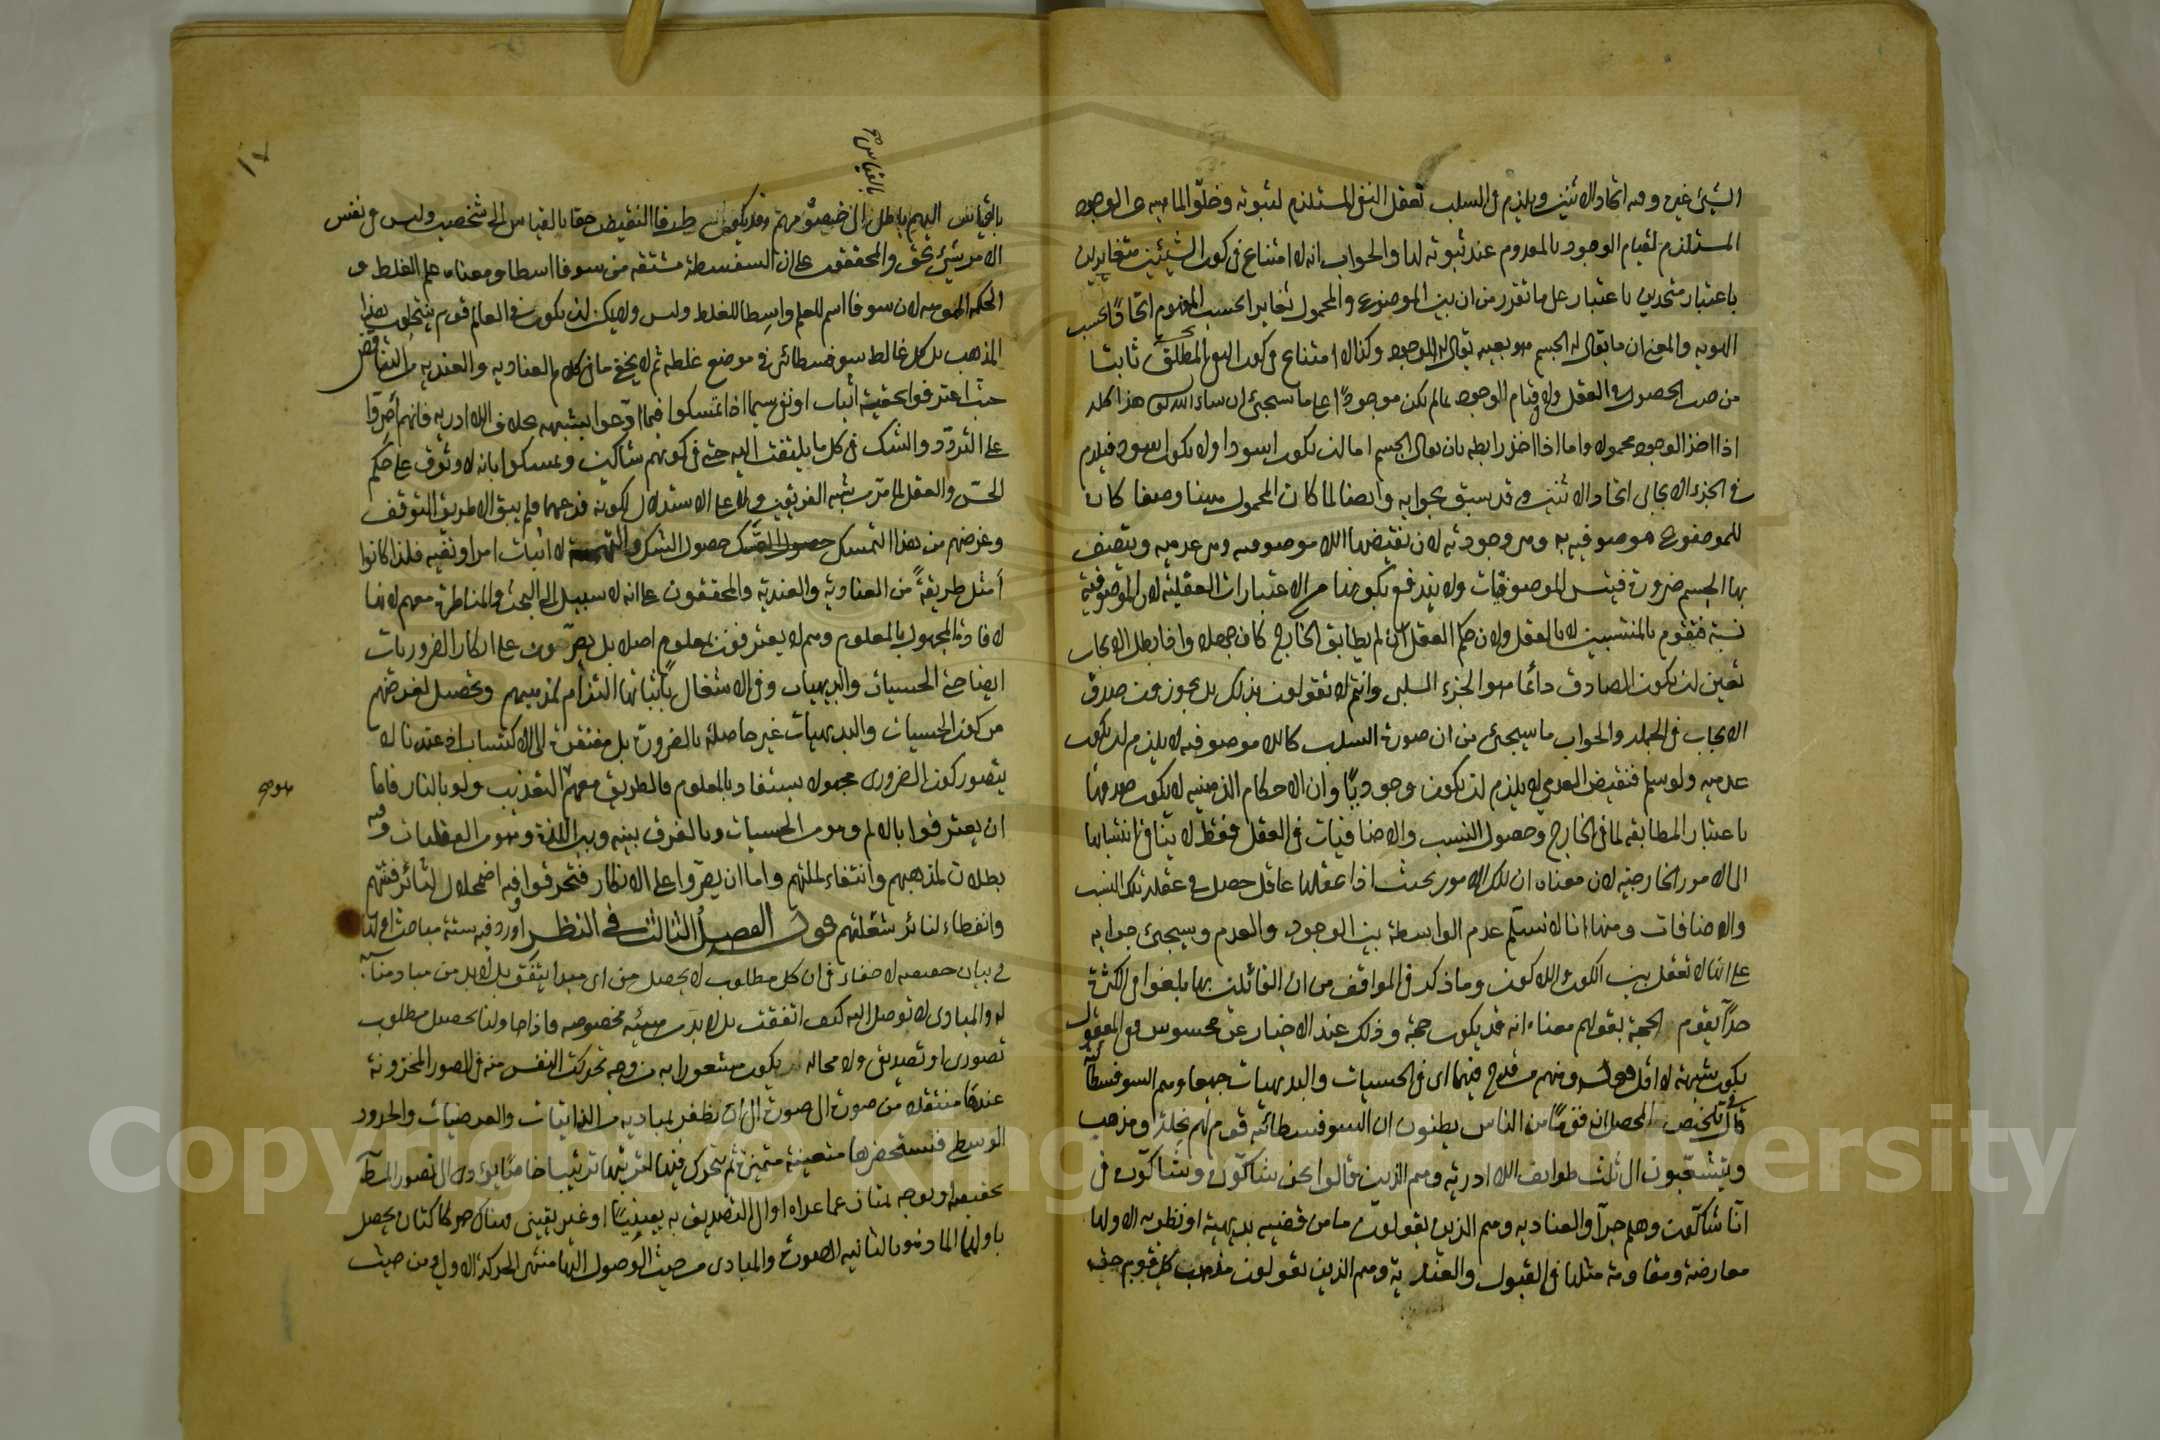 الشيئ غيره وفيه اتحاد الاثنين ويلزم في السلب تعقل النفي المستلزم لثبوته وخلو الماهية عن الوجود
المستلزم لقيام الوجود بالمعدوم عند ثبوته لها والجواب انه لا امتناع في كون الشيئين متغايرين
باعتبار متحدين باعتبار على ما تقرر من ان بين الموضوع والمحمول تغايرا بحسب المفهوم اتحادا بحسب
الهوية والمعنى ان ما يقال له الجسم هو بعينه يقال له الموجود وكذا لا امتناع في كون النفي المطلق ثابتا
من حيث الحصول في العقل ولا في قيام الوجود بما لم يكن موجودا على ما سيجئ ان شاء الله تعالى هذا كله
اذا اخذ الوجود محمولا واما اذا اخذ رابطة بان يقال الجسم اما ان يكون اسود او لا يكون اسود فيلزم
في الجزء الايجابي اتحاد الاثنين وقد سبق بجوابه وايضا لما كان المحمول وصفا كان
للموضوع موصوفية به وهي وجودية لان نقيضها اللا موصوفية وهي عدمية ويتصف
بها الجسم ضرورة فيتس الموصوفيات ولا يندفع بكونها من الاعتبارات العقلية لان الموصوفية
نسبة فتقوم بالمنتسبين لا بالعقل ولان حكم العقل ان لم يطابق الخارج كان جهلا واذا بطل الايجاب
تعين ان يكون الصادق دائما هو الجزء السلبي وانتم لا تقولون بذلك بل بجوزون صدق
الايجاب في الجملة والجواب ما سيجئ من ان صورة السلب كاللا موصوفية لا يلزم ان يكون
عدمية ولو سلم فنقيض العدمي لا يلزم ان يكون وجوديا وان الاحكام الذهنية لا يكون صدقها
باعتبار المطابقة لما في الخارج وحصول النسب والاضافيات في العقل فقط لا ينافي انتسابها
الى الامور الخارجية لان معناه ان تلك الامور بحيث اذا عقلها عاقل حصل في عقله تلك النسب
والاضافات ومنها انا لا نسلم عدم الواسطة بين الوجود والعدم وسيجئ جوابه
على انها لا تعقل بين الكون واللاكون وما ذكر في المواقف من ان القائلين بها بلغوا في الكثرة
حدا يقوم الحجة بقولهم معناه انه قد يكون حجة وذلك عند الاخبار عن محسوس وفي المعقول
يكون شبهة لا اقل قوله ومنهم من قدح فيهما اى في الحسيات والبديهيات جميعا وهم السوفسطائية
قال في تلخيص المحصل ان قوما من الناس يظنون ان السوفسطائية قوم لهم نحلة ومذهب
ويتشعبون الى ثلث طوايف اللاادرية وهم الذين قالوا نحن شاكون وشاكون في
انا شاكون وهلم جرا والعنادية وهم الذين يقولون ما من قضية بديهية او نظرية الا ولها
معارضة ومقاومة مثلها في القبول والعندية وهم الذين يقولون مذهب كل قوم حق
بالقياس صح
بالقياس اليهم باطل الى خصومهم وقد يكون طرفا النقيض حقا بالقياس الى شخصين وليس في نفس
الامر شيئ بحق والمحققون على ان السفسطة مشتقة من سوفا اسطا ومعناه علم الغلط و
الحكمة المموهة لان سوفا اسم للعلم واسطا للغلط وليس ولا يمكن ان يكون في العالم قوم ينتحلون هذا
المذهب بل كل غالط سوفسطائي في موضع غلطه ثم لا يخفى ما في كلام العنادية والعندية من التناقض
حيث اعترفوا بحقية اثبات او نفي سيما اذا تمسكوا فيما ادعوا بشبهه بخلاف اللاادرية فانهم اصروا
على التردد والشك في كل ما يلتفت اليه حتى في كونهم شاكين وتمسكوا بانه لا وثوق على حكم
الحس والعقل لما مر من شبه الفريقين ولا على الاستدلال لكونه فرعهما فلم يبق الا طريق التوقف
وغرضهم من هذا التمسك حصول الشك والتهمة لا اثبات امر او نفيه فلذا كانوا
أمثل طريقة من العنادية والعندية والمحققون على انه لا سبيل الى البحث والمناظرة معهم لانها
لافادة المجهول بالمعلوم وهم لا يعترفون بمعلوم اصلا بل يصرون على انكار الضروريات
ايضا حتى الحسيات والبديهيات وفي الاشتغال باثباتها التزام لمذهبهم وتحصيل لغرضهم
من كون الحسيات والبديهيات غير حاصلة بالضرورة بل مفتقرة الى الاكتساب اذ عندنا لا
يتصور كون الضروري مجهولا يستفاد بالمعلوم فالطريق معهم التعذيب ولو بالنار فاما
ان يعترفوا بالالم وهو من الحسيات وبالفرق بينه وبين اللذة وهو من العقليات وفيه
بطلان لمذهبهم وانتفاء لملتهم واما ان يصروا على الانكار فيحترقوا وفيه اضمحلال لثائر فتنتهم
وانطفاء لنائر شعلتهم قوله الفصل الثالث في النظر اورد فيه ستة مباحث اولها
في بيان حقيقته لا خفاء في ان كل مطلوب لا يحصل من اى مبدا يتفق بل لا بد من مباد مناسبة
له والمبادى لا توصل اليه كيف اتفقت بل لا بد من هيئة مخصوصة فاذا حاولنا تحصيل مطلوب
تصورى او تصديقى ولا محالة يكون مشعورا به من وجه تحركت النفس منه في الصور المخزونة
عندها منتقلة من صورة الى صورة الى ان تظفر بمباديه من الذاتيات والعرضيات والحدود
الوسطى فتستحضرها متعينة متميزة ثم تتحرك فيها لترتيبها ترتيبا خاصا يؤدى الى تصور المطلوب
بحقيقته او بوجه يمتاز عما عداه او الى التصديق به يقينيا او غير يقيني فهناك حركتان يحصل
باوليهما المادة وبالثانية الصورة والمبادى من حيث الوصول اليها منتهى الحركة الاولى ومن حيث